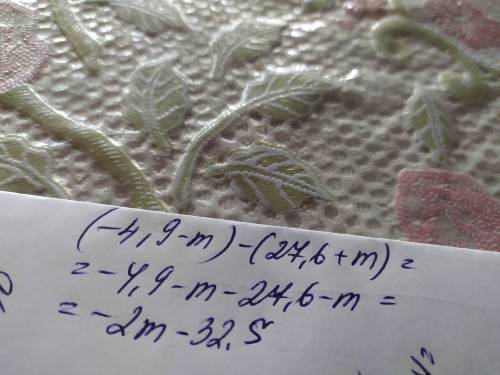 (-4,9-m)-(27,6+m)=
=-4,9-m-27,6-m=
=-2m-32,5